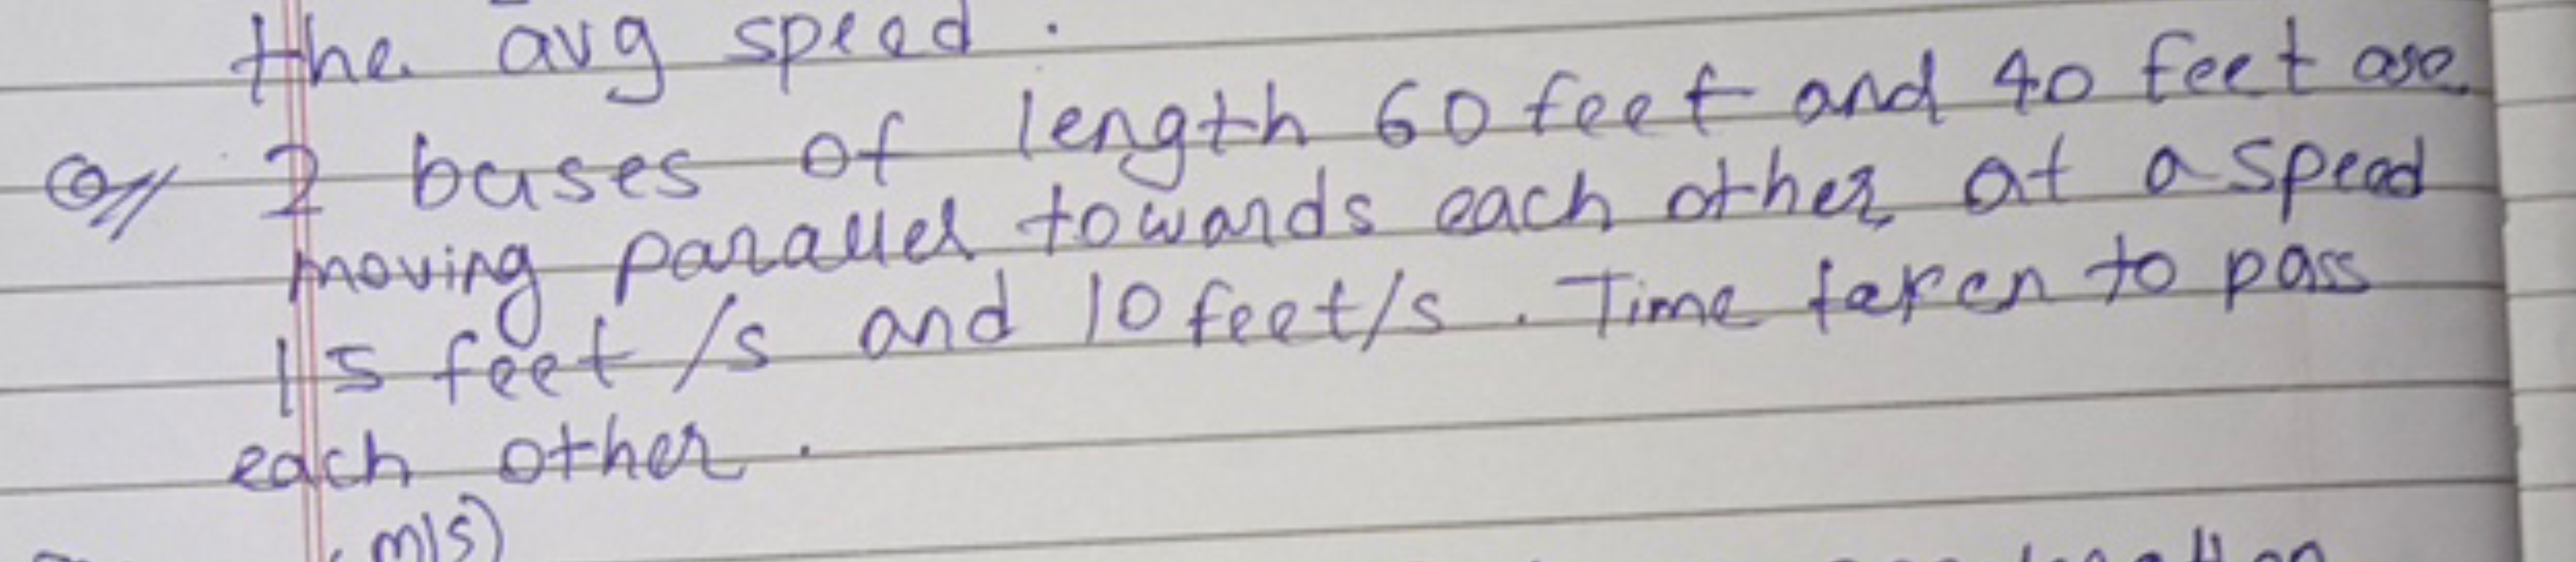 the avg speed.
Q// 2 buses of length 60 feet and 40 feet are
moving parallel towards each other at a speed
15 feet/s and 10 feet/s. Time taken to pass
each other.
m/s)